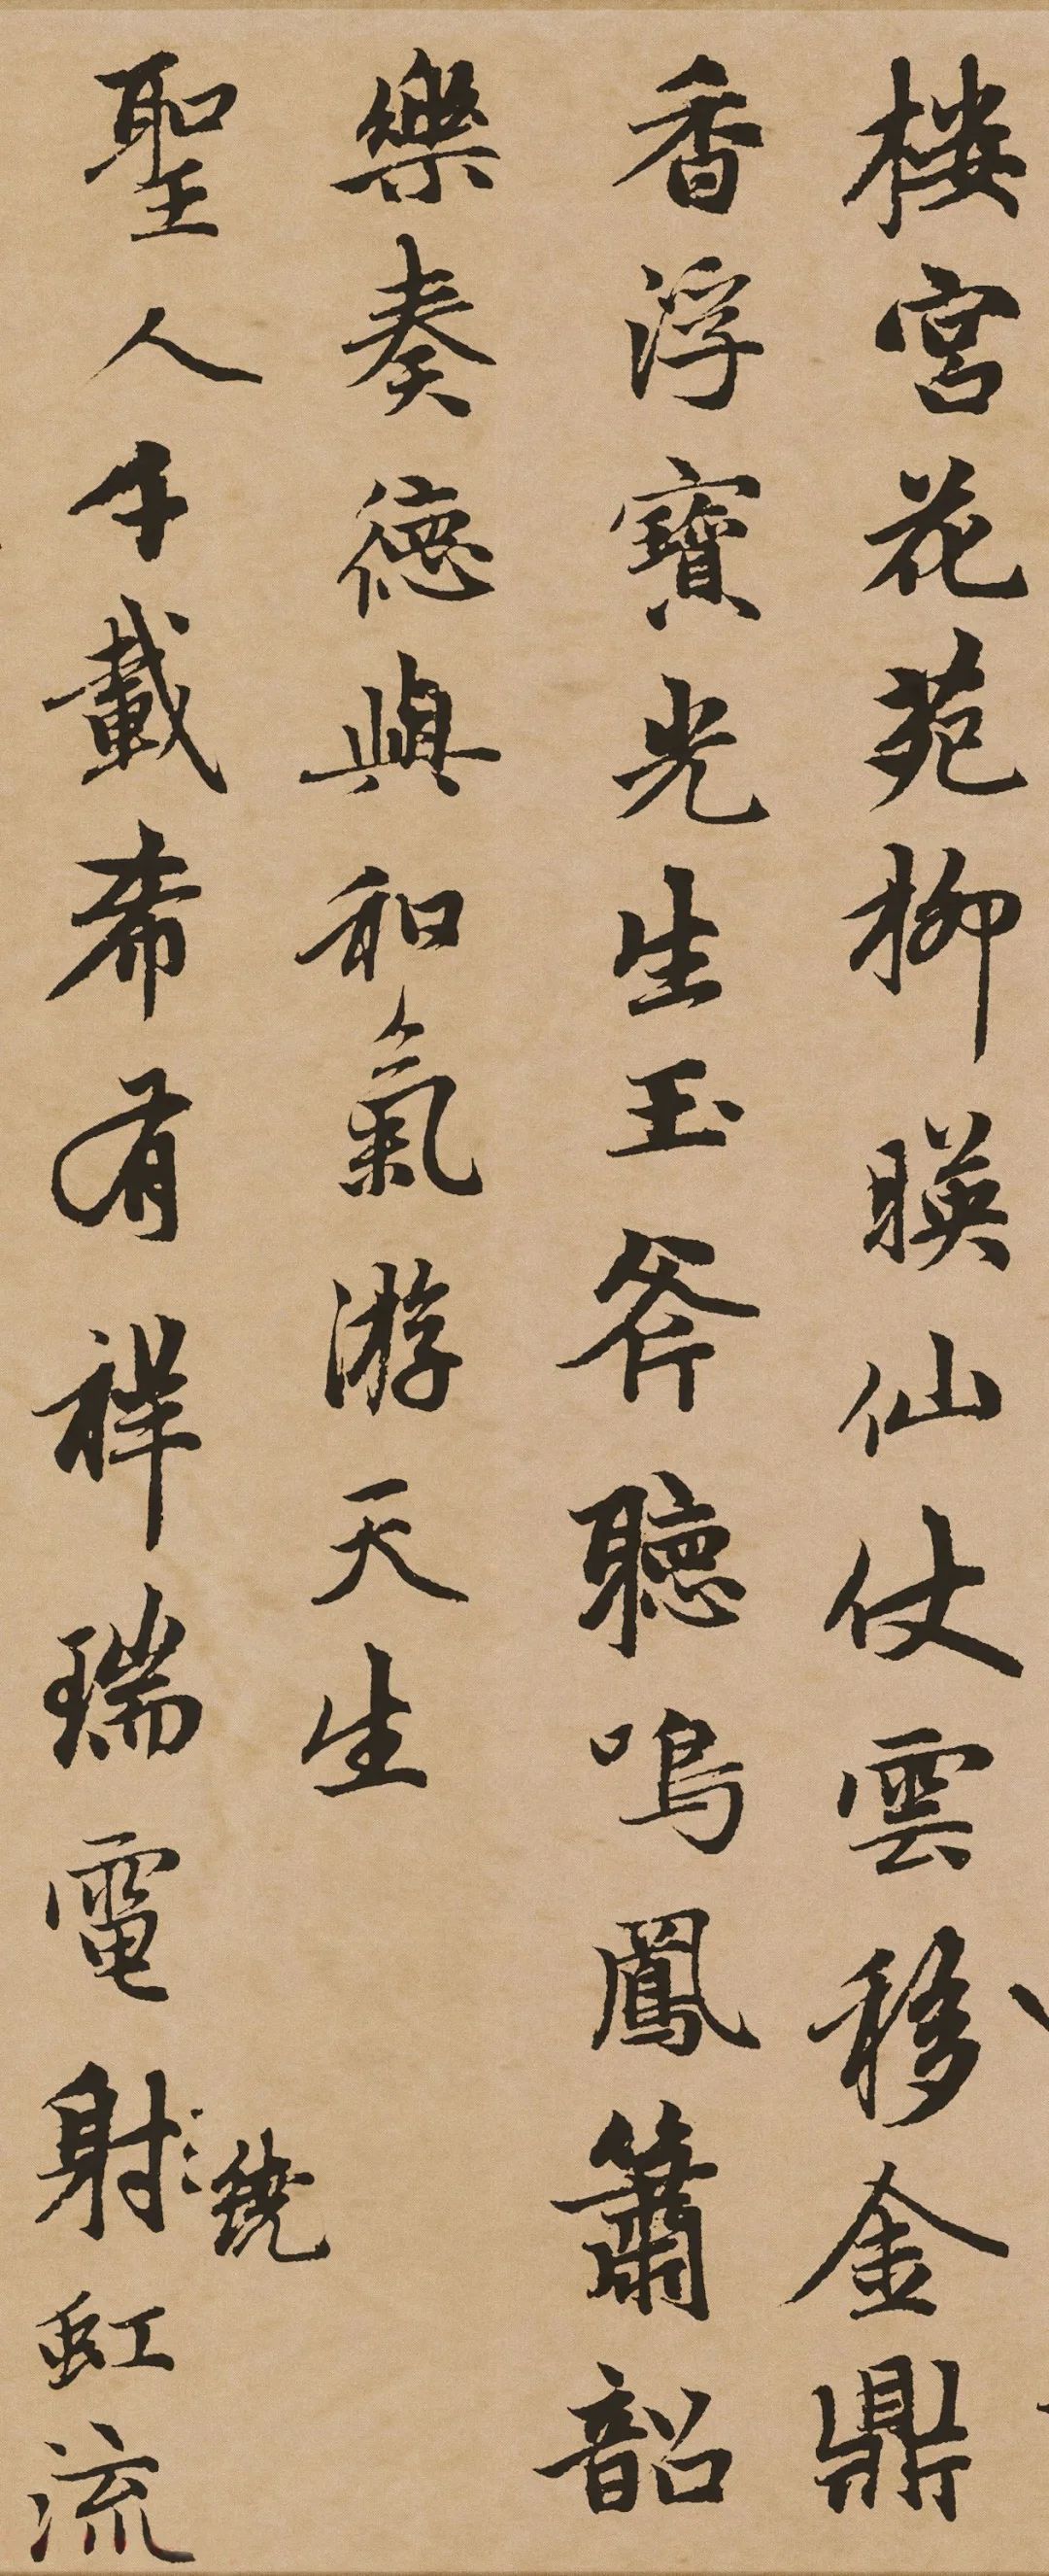 楼宮花苑柳暎仙仗雲移金鼎
香浮寶光生玉斧聽鳴鳳簫韶
樂奏德與和氣游天生
聖人千載希有祥瑞電射虹流
繞